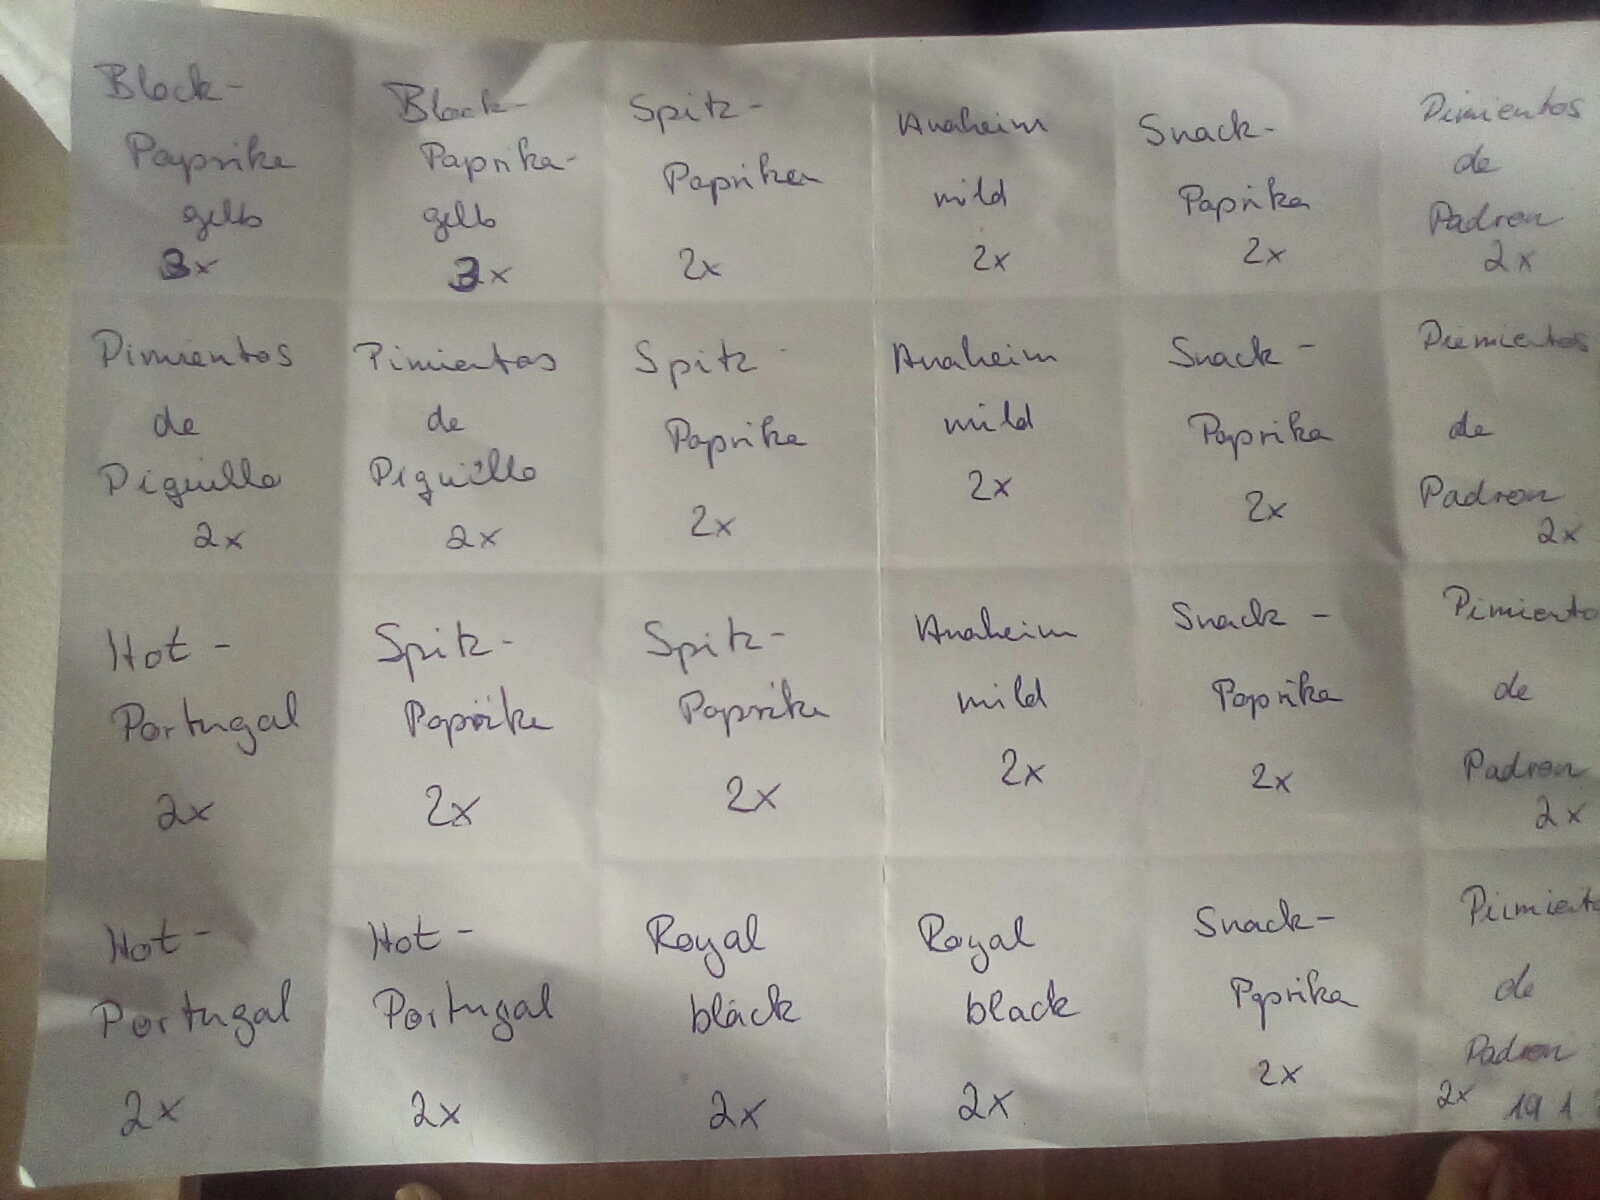 Block-
Paprika
gelb
3x
Block-
Paprika-
gelb
3x
Spitz-
Paprika
2x
Anaheim
mild
2x
Snack-
Paprika
2x
Pimientos
de
Padron
2x
Pimientos
de
Piquillo
2x
Pimientos
de
Piquillo
2x
Spitz-
Paprika
2x
Anaheim
mild
2x
Snack-
Paprika
2x
Piemientos
de
Padron
2x
Hot-
Portugal
2x
Spitz-
Paprika
2x
Spitz-
Paprika
2x
Anaheim
mild
2x
Snack-
Paprika
2x
Pimiento
de
Padron
2x
Hot-
Portugal
2x
Hot-
Portugal
2x
Royal
black
2x
Royal
black
2x
Snack-
Paprika
2x
Piimiento
de
Padron
2x 19 1